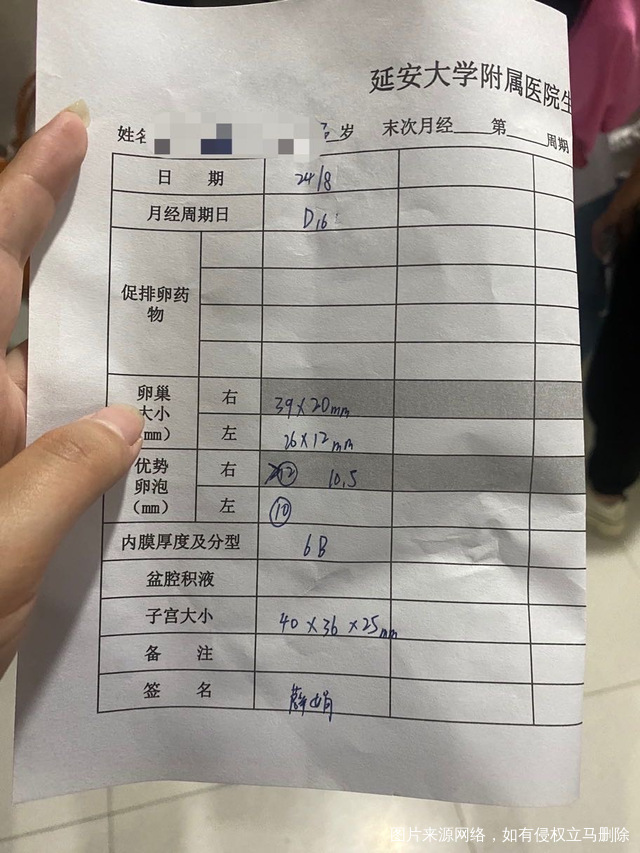 延安大学附属医院生
姓名 岁 末次月经 第 周期
日 期 24/8
月经周期日 D16
促排卵药
物
卵巢
大小
mm）
右 39×20mm
左 26×12mm
优势
卵泡
（mm）
右 12 10.5
左 10
内膜厚度及分型 6B
盆腔积液
子宫大小 40×36×25mm
备 注
签 名 薛娟
图片来源网络，如有侵权立马删除